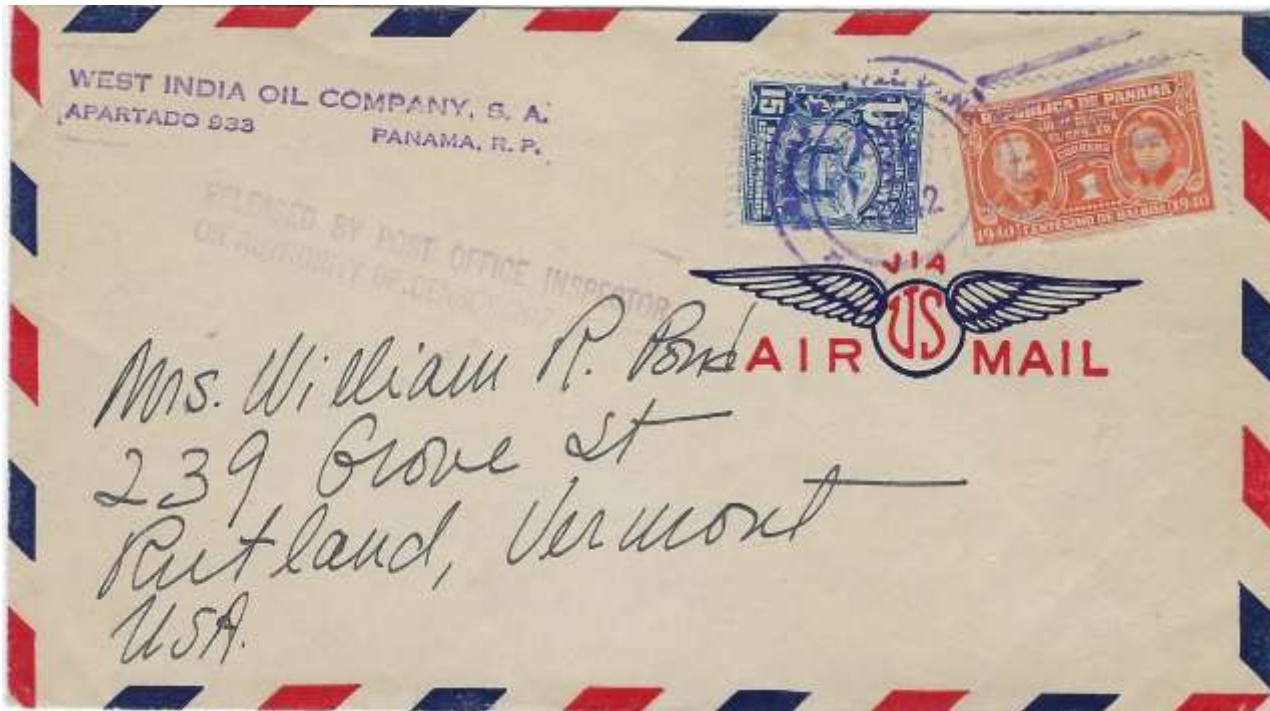 WEST INDIA OIL COMPANY, S. A.
APARTADO 933 PANAMA, R. P.
RELEASED BY POST OFFICE INSPECTOR
ON AUTHORITY OF
15
REPUBLICA DE PANAMA
CORREOS
1
1940 CENTESIMO DE BALBOA 1940
VIA
US
AIR MAIL
Mrs. William R. Pond
239 Grove St
Rutland, Vermont
USA.